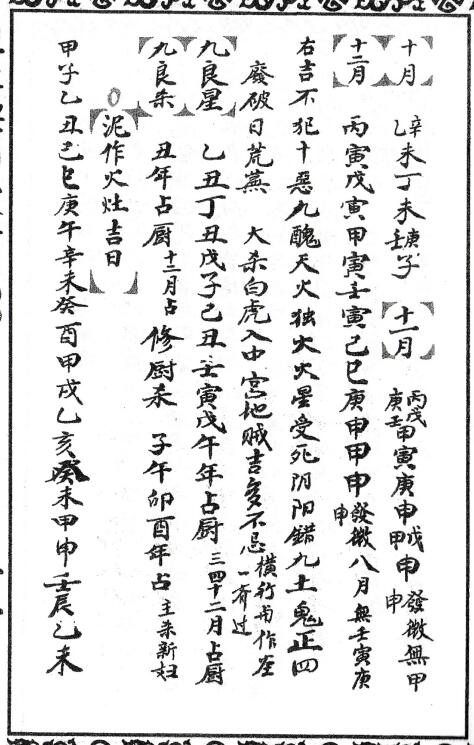 十月 辛未乙未丁未庚子壬子 十一月 丙戌庚壬甲寅庚申戊申甲申發微無甲申
十二月 丙寅戊寅甲寅壬寅己巳庚申甲申發微八月無壬寅庚申
右吉不犯十惡九醜天火独火火星受死阴阳錯九土鬼正四
廢破日荒蕪 大杀白虎入中宮地賊吉多不忌橫行
九良星 乙丑丁丑戊子己丑壬寅戊午年占厨三四十二月占厨
九良杀 丑年占厨十二月占 修厨杀 子午卯酉年占主杀新妇
泥作火灶吉日
甲子乙丑己巳庚午辛未癸酉甲戌乙亥癸未甲申壬辰乙未